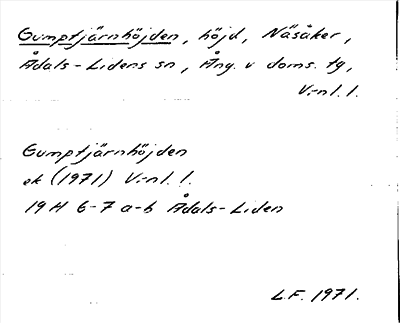 Gumptjärnhöjden, höjd, Näsåker,
Ådals-Lidens sn, Ång. v doms. tg,
V:nl. l.
Gumptjärnhöjden
ek (1971) V:nl. l.
19 H 6-7 a-b Ådals-Liden
L.F. 1971.